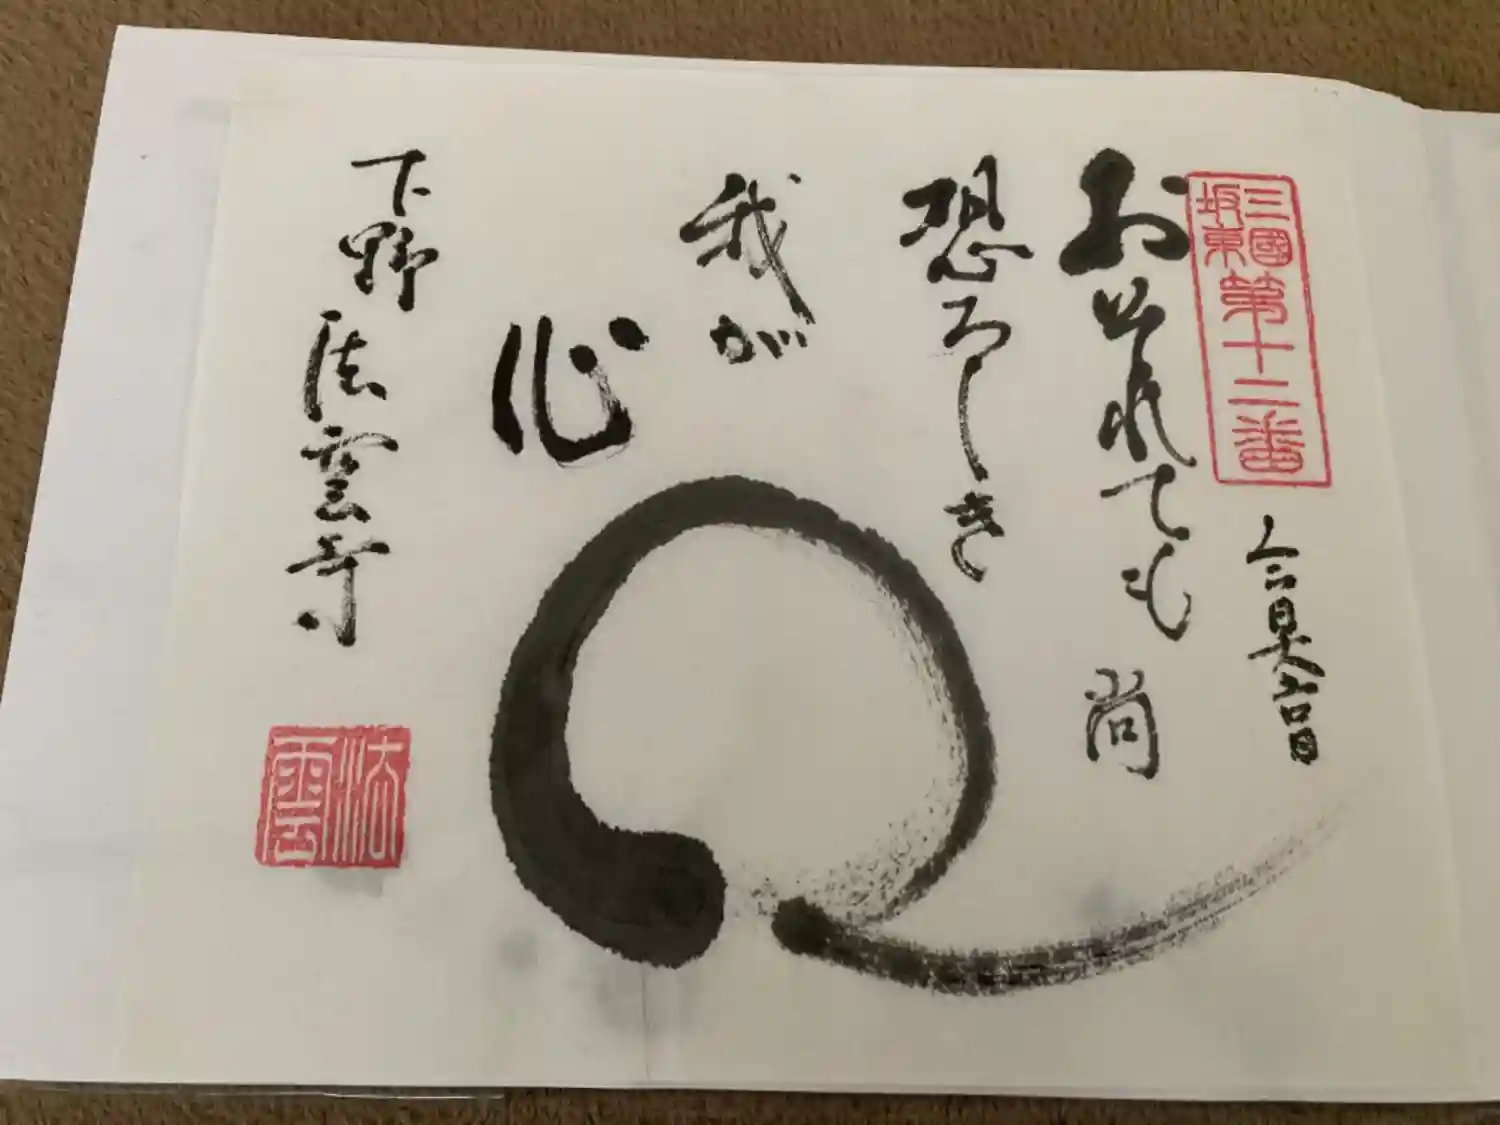 三國
坂東
第十二番
おそれても 尚
恐ろしき
我が
心
下野 法雲寺
法雲